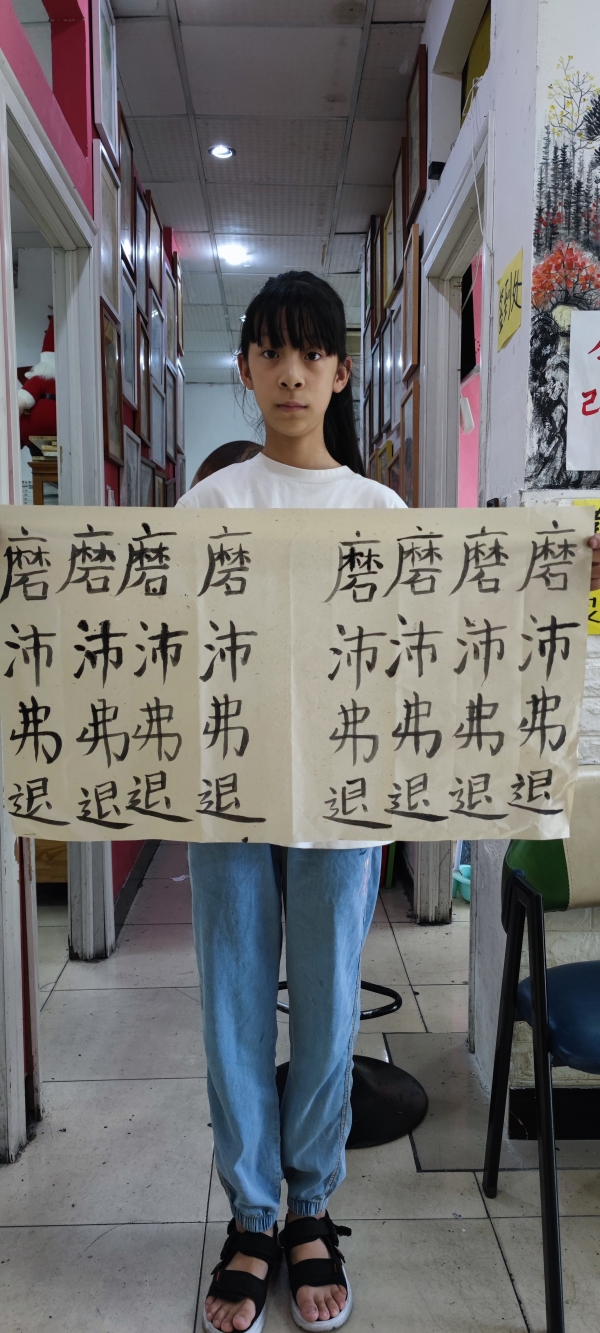 磨沛弗退
磨沛弗退
磨沛弗退
磨沛弗退
磨沛弗退
磨沛弗退
磨沛弗退
磨沛弗退